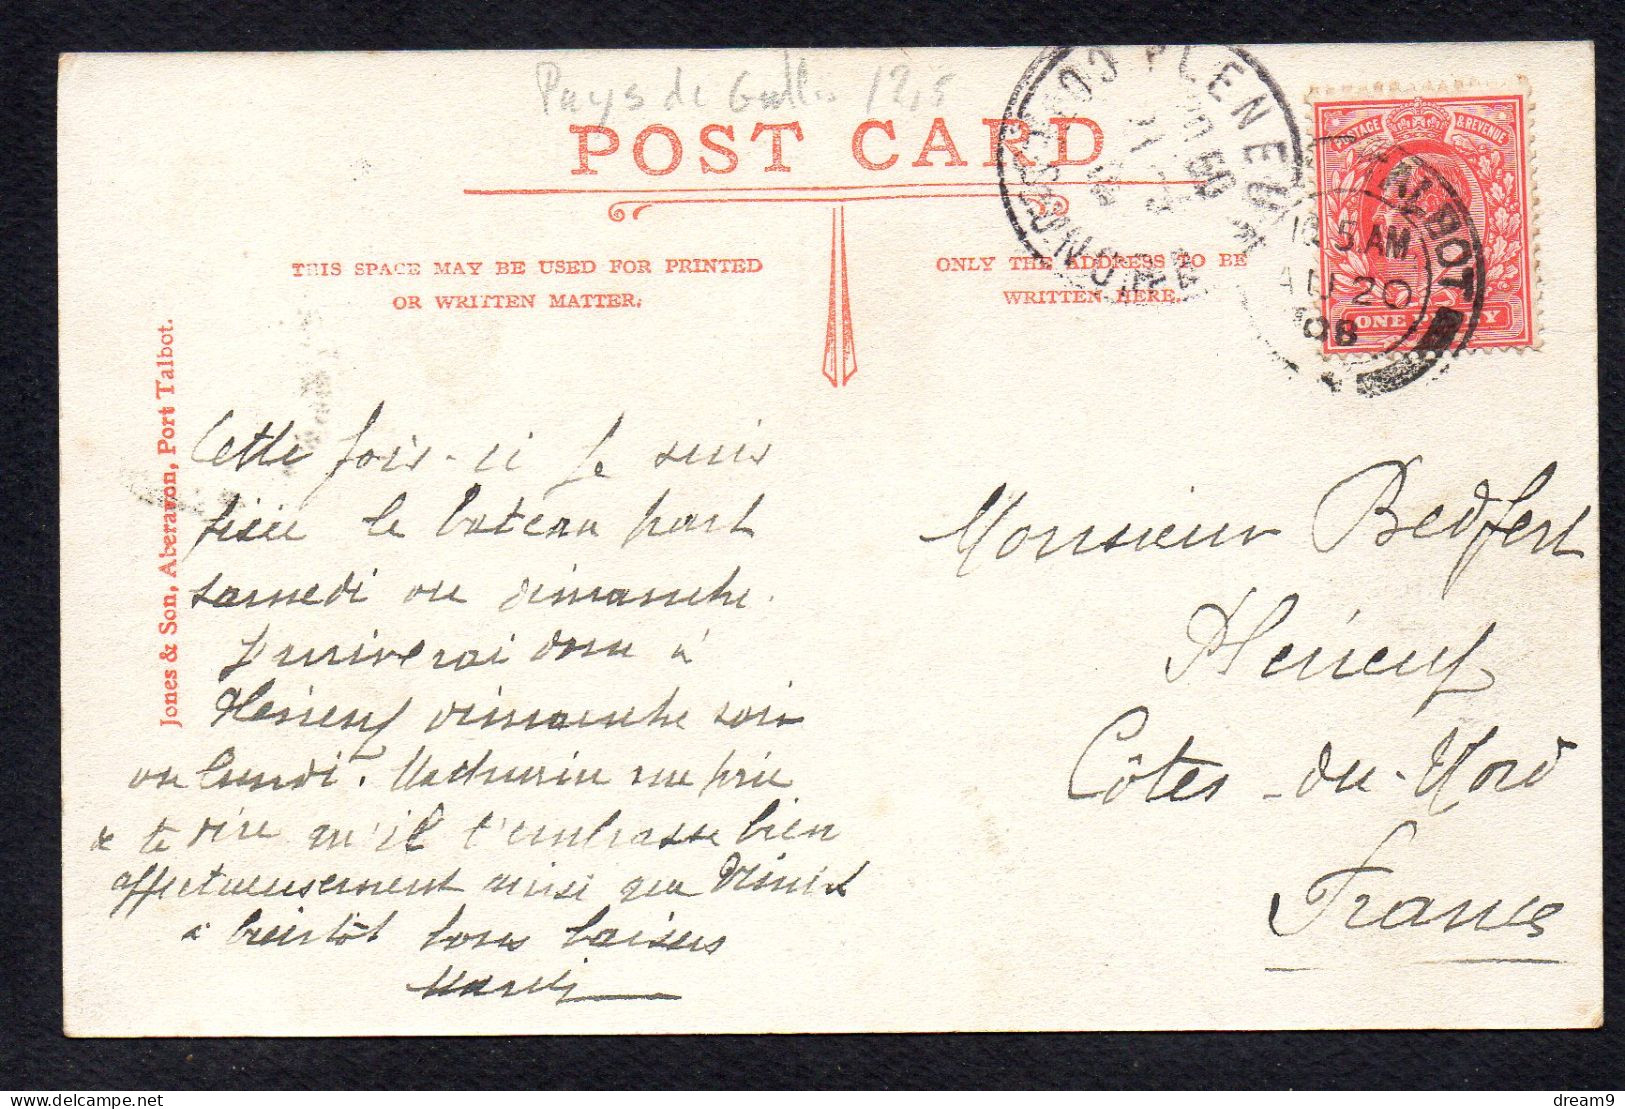 Pays de Galles 12,5
POST CARD
THIS SPACE MAY BE USED FOR PRINTED
OR WRITTEN MATTER.
ONLY THE ADDRESS TO BE
WRITTEN HERE.
PLENEUF
COTES DU NORD
POSTAGE & REVENUE
ONE PENNY
TALBOT
5.AM
AU 20
08
Jones & Son, Aberavon, Port Talbot.
Cette fois-ci je suis
fixée le bateau part
samedi ou dimanche.
J'arriverai donc à
Pléneuf dimanche soir
ou lundi. Mathurin me prie
de te dire qu'il t'embrasse bien
affectueusement ainsi que
à bientôt bons baisers
Monsieur Bedfert
Pléneuf
Côtes-du-Nord
France
dream9